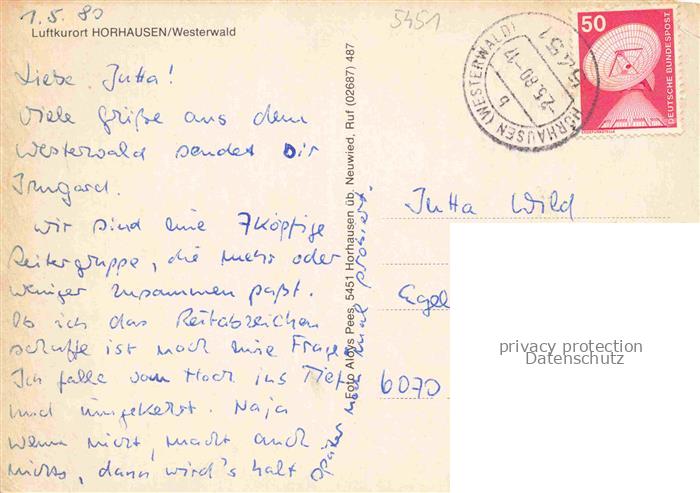 1.5.80
5451
Luftkurort HORHAUSEN/Westerwald
Liebe Jutta!
Viele Grüße aus dem
Westerwald sendet Dir
Irmgard.
Wir sind eine 7köpfige
Reitergruppe, die mehr oder
weniger zusammen paßt.
Ob ich das Reitabzeichen
schaffe ist noch eine Frage
Ich falle vom Hoch ins Tief
und umgekehrt. Naja
wenn nicht, macht auch
nichts, dann wird's halt
später noch mal probiert.
Foto Aloys Pees, 5451 Horhausen üb. Neuwied, Ruf (02687) 487
HORHAUSEN (WESTERWALD)
5451
-2.5.80-17
b
50
DEUTSCHE BUNDESPOST
ERDEFUNKSTELLE
Jutta Wild
Egel
6070
privacy protection
Datenschutz